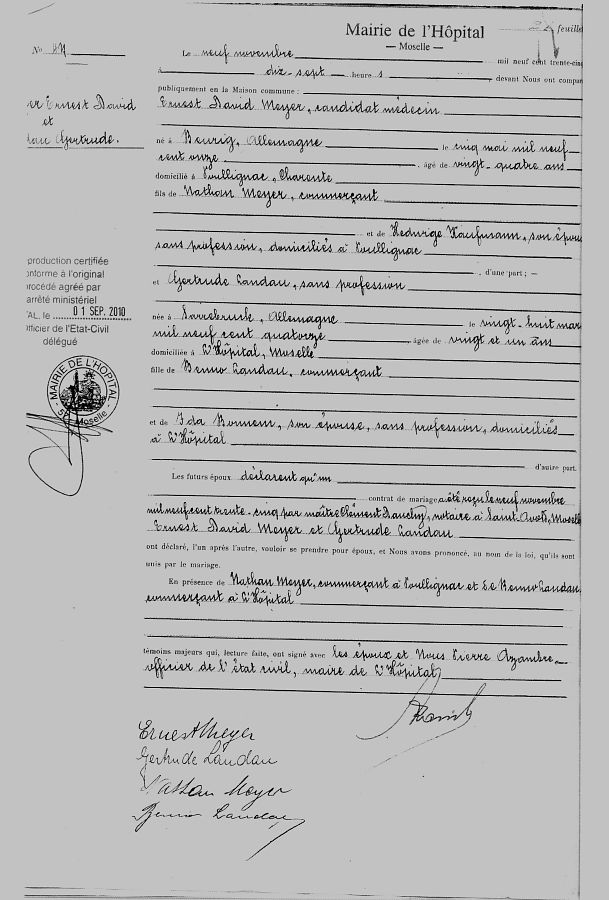 Mairie de l'Hôpital
— Moselle —
feuille
No
Le neuf novembre mil neuf cent trente-cinq
à dix-sept heure s devant Nous ont compar
publiquement en la Maison commune :
er Ernest David
et
dau Gertrude.
Ernest David Meyer, candidat médecin
né à Beurig, Allemagne le cinq mai mil neuf
cent onze âgé de vingt-quatre ans
domicilié à Toullignac, Charente
fils de Nathan Meyer, commerçant
et de Hedwige Kaufmann, son épouse
sans profession, domiciliés à Toullignac
d'une part ; —
et Gertrude Landau, sans profession
née à Sarrebruck, Allemagne le vingt-huit mar
mil neuf cent quatorze âgée de vingt et un ans
domiciliée à L'Hôpital, Moselle
fille de Benno Landau, commerçant
et de Ida Bonnem, son épouse, sans profession, domiciliés
à L'Hôpital
d'autre part.
Les futurs époux déclarent qu'un
contrat de mariage a été reçu le neuf novembre
mil neuf cent trente-cinq par maître Clément Dauchy, notaire à Saint-Avold, Moselle
Ernest David Meyer et Gertrude Landau
ont déclaré, l'un après l'autre, vouloir se prendre pour époux, et Nous avons prononcé, au nom de la loi, qu'ils sont
unis par le mariage.
En présence de Nathan Meyer, commerçant à Toullignac et de Benno Landau,
commerçant à L'Hôpital
témoins majeurs qui, lecture faite, ont signé avec les époux et Nous Pierre Azambre
officier de l'état civil, maire de L'Hôpital
production certifiée
onforme à l'original
procédé agréé par
arrêté ministériel
'AL, le 01 SEP. 2010
Officier de l'Etat-Civil
délégué
MAIRIE DE L'HOPITAL
57 Moselle
Ernest Meyer
Gertrude Landau
Nathan Meyer
Benno Landau